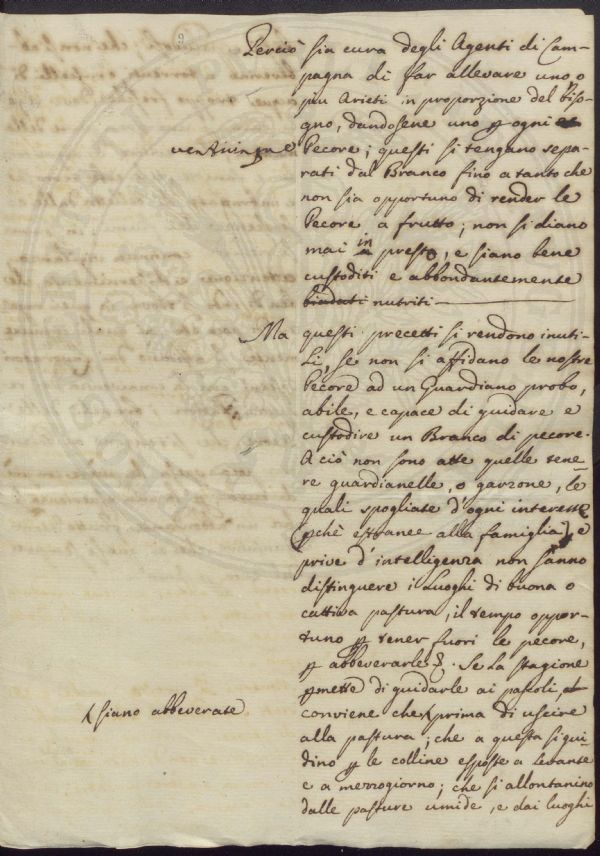 Perciò sia cura degli Agenti di Cam-
pagna di far allevare uno o
più Arieti in proporzione del biso-
gno, dandosene uno p ogni
venticinque
Pecore; questi si tengano sepa-
rati dal Branco fino a tanto che
non sia opportuno di render le
Pecore a frutto; non si diano
mai in presto, e siano bene
custoditi e abbondantemente
biadati nutriti
Ma questi precetti si rendono inuti-
li, se non si affidano le nostre
Pecore ad un Guardiano probo,
abile, e capace di guidare e
custodire un Branco di pecore.
A ciò non sono atte quelle tene-
re guardianelle, o garzone, le
quali spogliate d'ogni interesse
(pchè estranee alla famiglia) e
prive d'intelligenza non sanno
distinguere i Luoghi di buona o
cattiva pastura, il tempo oppor-
tuno p tener fuori le pecore,
p abbeverarle. Se la stagione
pmette di guidarle ai pascoli,
conviene che prima di uscire
siano abbeverate
alla pastura; che a questa si gui-
dino p le colline esposte a Levante
e a mezzogiorno; che si allontanino
dalle pasture umide, e dai luoghi